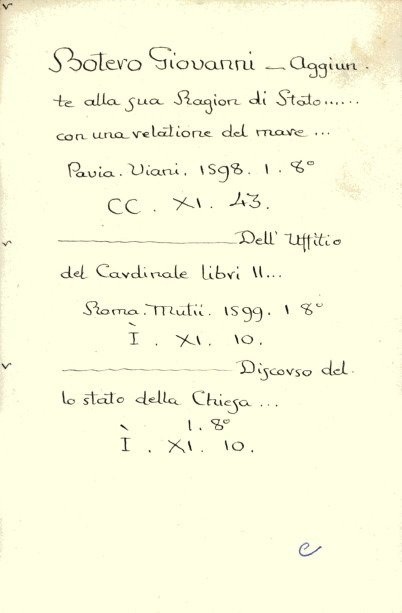 Botero Giovanni — Aggiun.
te alla sua Ragion di Stato......
con una relatione del mare ...
Pavia. Viani. 1598. 1. 8°
CC. XI. 43.
——— Dell' Uffitio
del Cardinale libri II...
Roma. Mutii. 1599. 1 8°
Ì. XI. 10.
——— Discorso del.
lo stato della Chiesa ...
1. 8°
Ì. XI. 10.
C